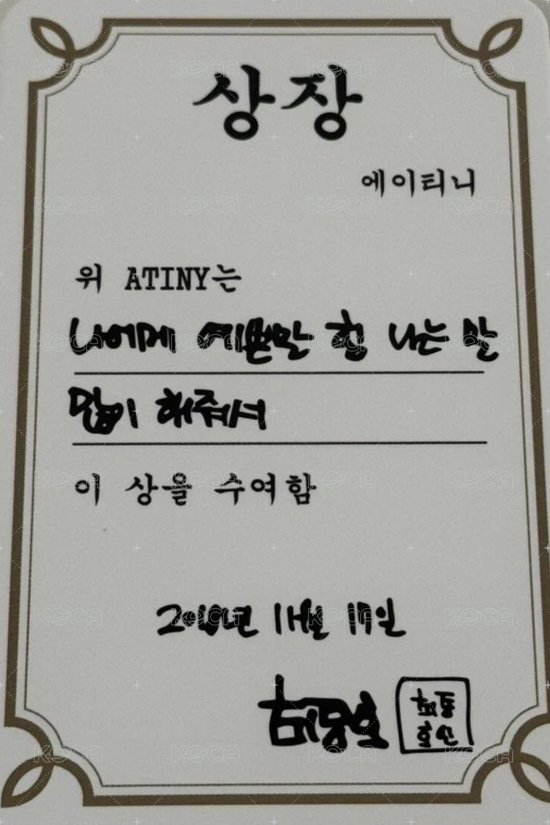 상장
에이티니
위 ATINY는
나에게 예쁜말 힘 나는 말
많이 해줘서
이 상을 수여함
11월 17일
최종호
최종
호인
KOCA